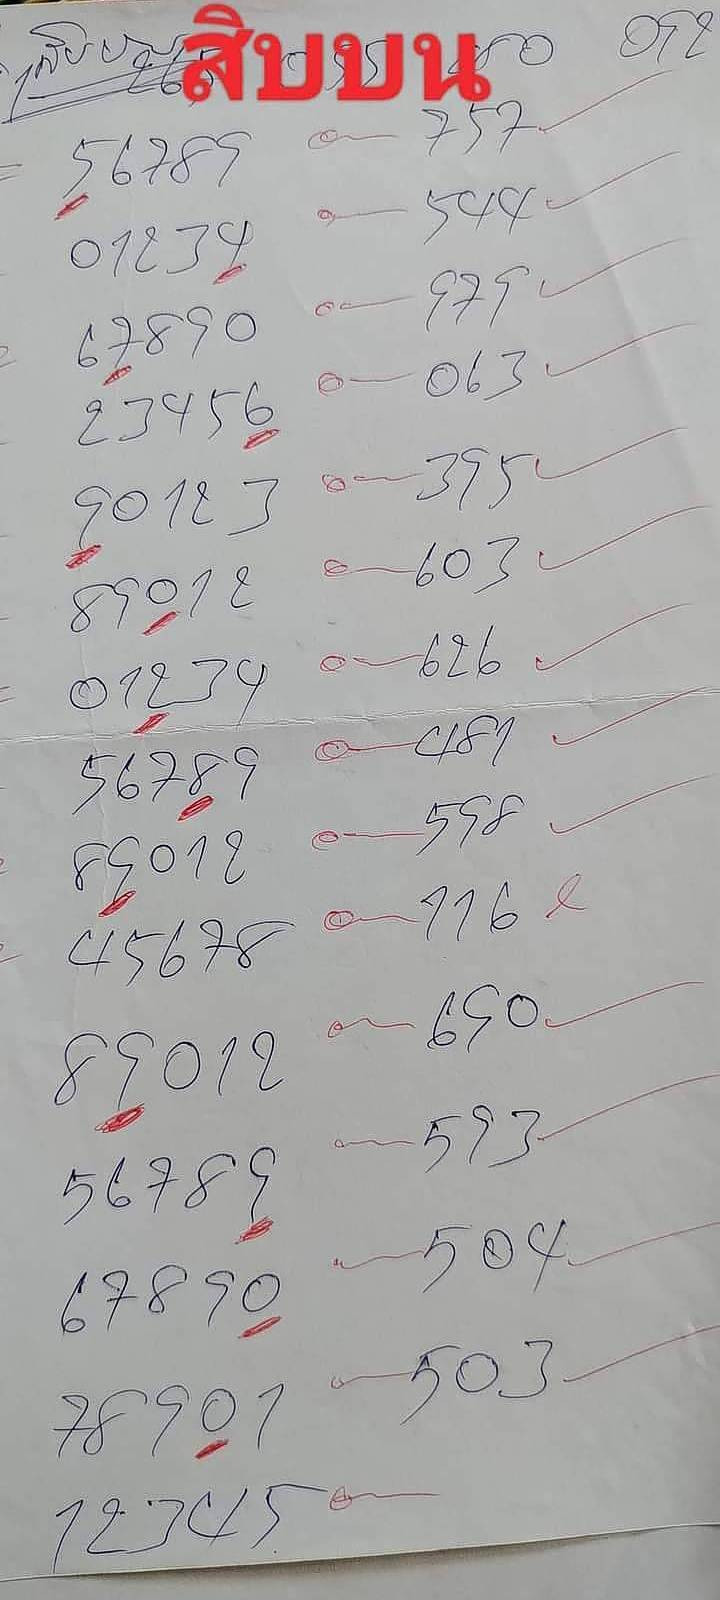 สิบบน 092
56789 757
01234 544
67890 979
23456 063
90123 395
89012 603
01234 626
56789 481
89012 598
45678 116
89012 690
56789 593
67890 504
78901 503
12345